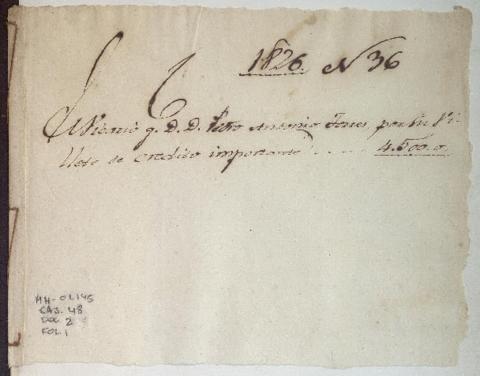 1826. N 36
q. D. D. Pedro Antonio Torres, por un Vi-
llete de credito importante . . . . . 4.500.0
MH-OL145
CAJ. 48
DOC 2
FOL. 1